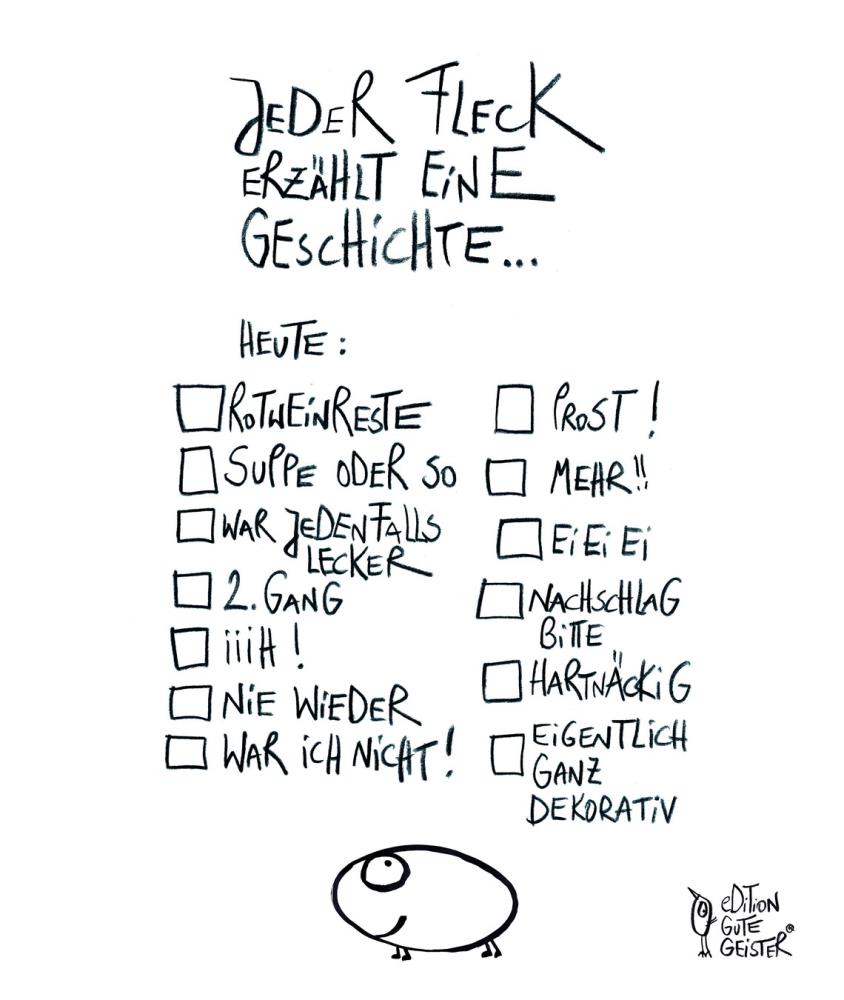 JEDER FLECK
ERZÄHLT EINE
GESCHICHTE...
HEUTE:
ROTWEINRESTE
SUPPE ODER SO
WAR JEDENFALLS
LECKER
2. GANG
iiiH!
NIE WIEDER
WAR ICH NICHT!
PROST!
MEHR!!
Ei Ei Ei
NACHSCHLAG
BITTE
HARTNÄCKIG
EIGENTLICH
GANZ
DEKORATIV
EDITION
GUTE
GEISTER®